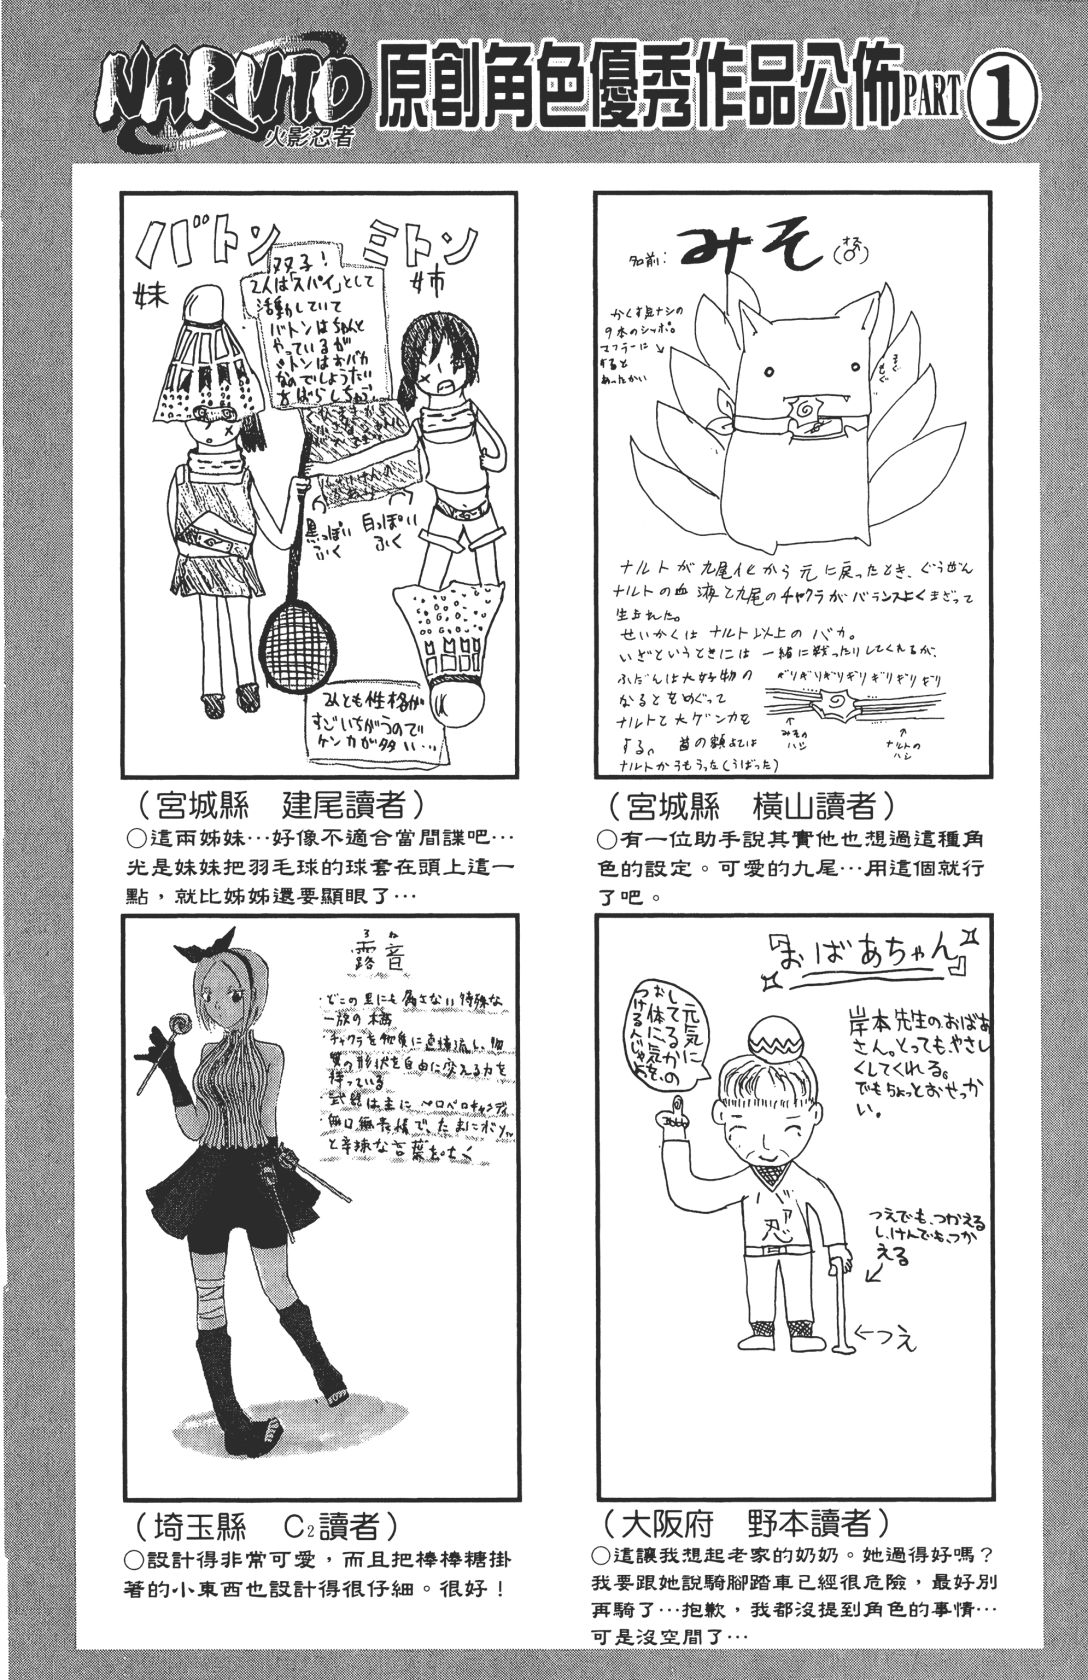 NARUTO
火影忍者
原創角色優秀作品公佈PART 1
バトン
妹
ミトン
姉
双子!
2人は「スパイ」として
活動していて
バトンはちゃんと
やっているが
ミトンはおバカ
なので
黒っぽい
ふく
白っぽい
ふく
2人とも性格が
すごいちがうので
ケンカが多い…
(宮城縣 建尾讀者)
○這兩姊妹…好像不適合當間諜吧…
光是妹妹把羽毛球的球套在頭上這一
點,就比姊姊還要顯眼了…
名前:みそ(オス♂)
かくす気ナシの
9本のシッポ。
マフラーに
すると
あったかい
もぐもぐ
ナルトが九尾化から元に戻ったとき、ぐうぜん
ナルトの血液と九尾のチャクラがバランスよくまざって
生まれた。
せいかくはナルト以上のバカ。
いざというときには一緒に戦ったりしてくれるが、
ふだんは大好物の
なるとをめぐって
ナルトと大ゲンカを
する。首の額あては
ナルトからもらった(うばった)
ギリギリギリギリギリギリギリ
みその
ハシ
ナルトの
ハシ
(宮城縣 橫山讀者)
○有一位助手說其實他也想過這種角
色的設定。可愛的九尾…用這個就行
了吧。
露音
ろね
・どこの里にも属さない特殊な
一族の
・チャクラを物質に直接流し、物
質の形状を自由に変える力を
持っている
・武器は主にペロペロキャンディ
・無口無表情で、たまにボソッ
と辛辣な言葉をはく
(埼玉縣 C2讀者)
○設計得非常可愛,而且把棒棒糖掛
著的小東西也設計得很仔細。很好!
『おばあちゃん』
元気に
してるかの
お体に気を
つけるんじゃよ
岸本先生のおばあ
さん。とってもやさし
くしてくれる。
でもちょっとおせっか
い。
忍
つえでも、つかえる
し、けんでも、つか
える
←つえ
(大阪府 野本讀者)
○這讓我想起老家的奶奶。她過得好嗎?
我要跟她說騎腳踏車已經很危險,最好別
再騎了…抱歉,我都沒提到角色的事情…
可是沒空間了…